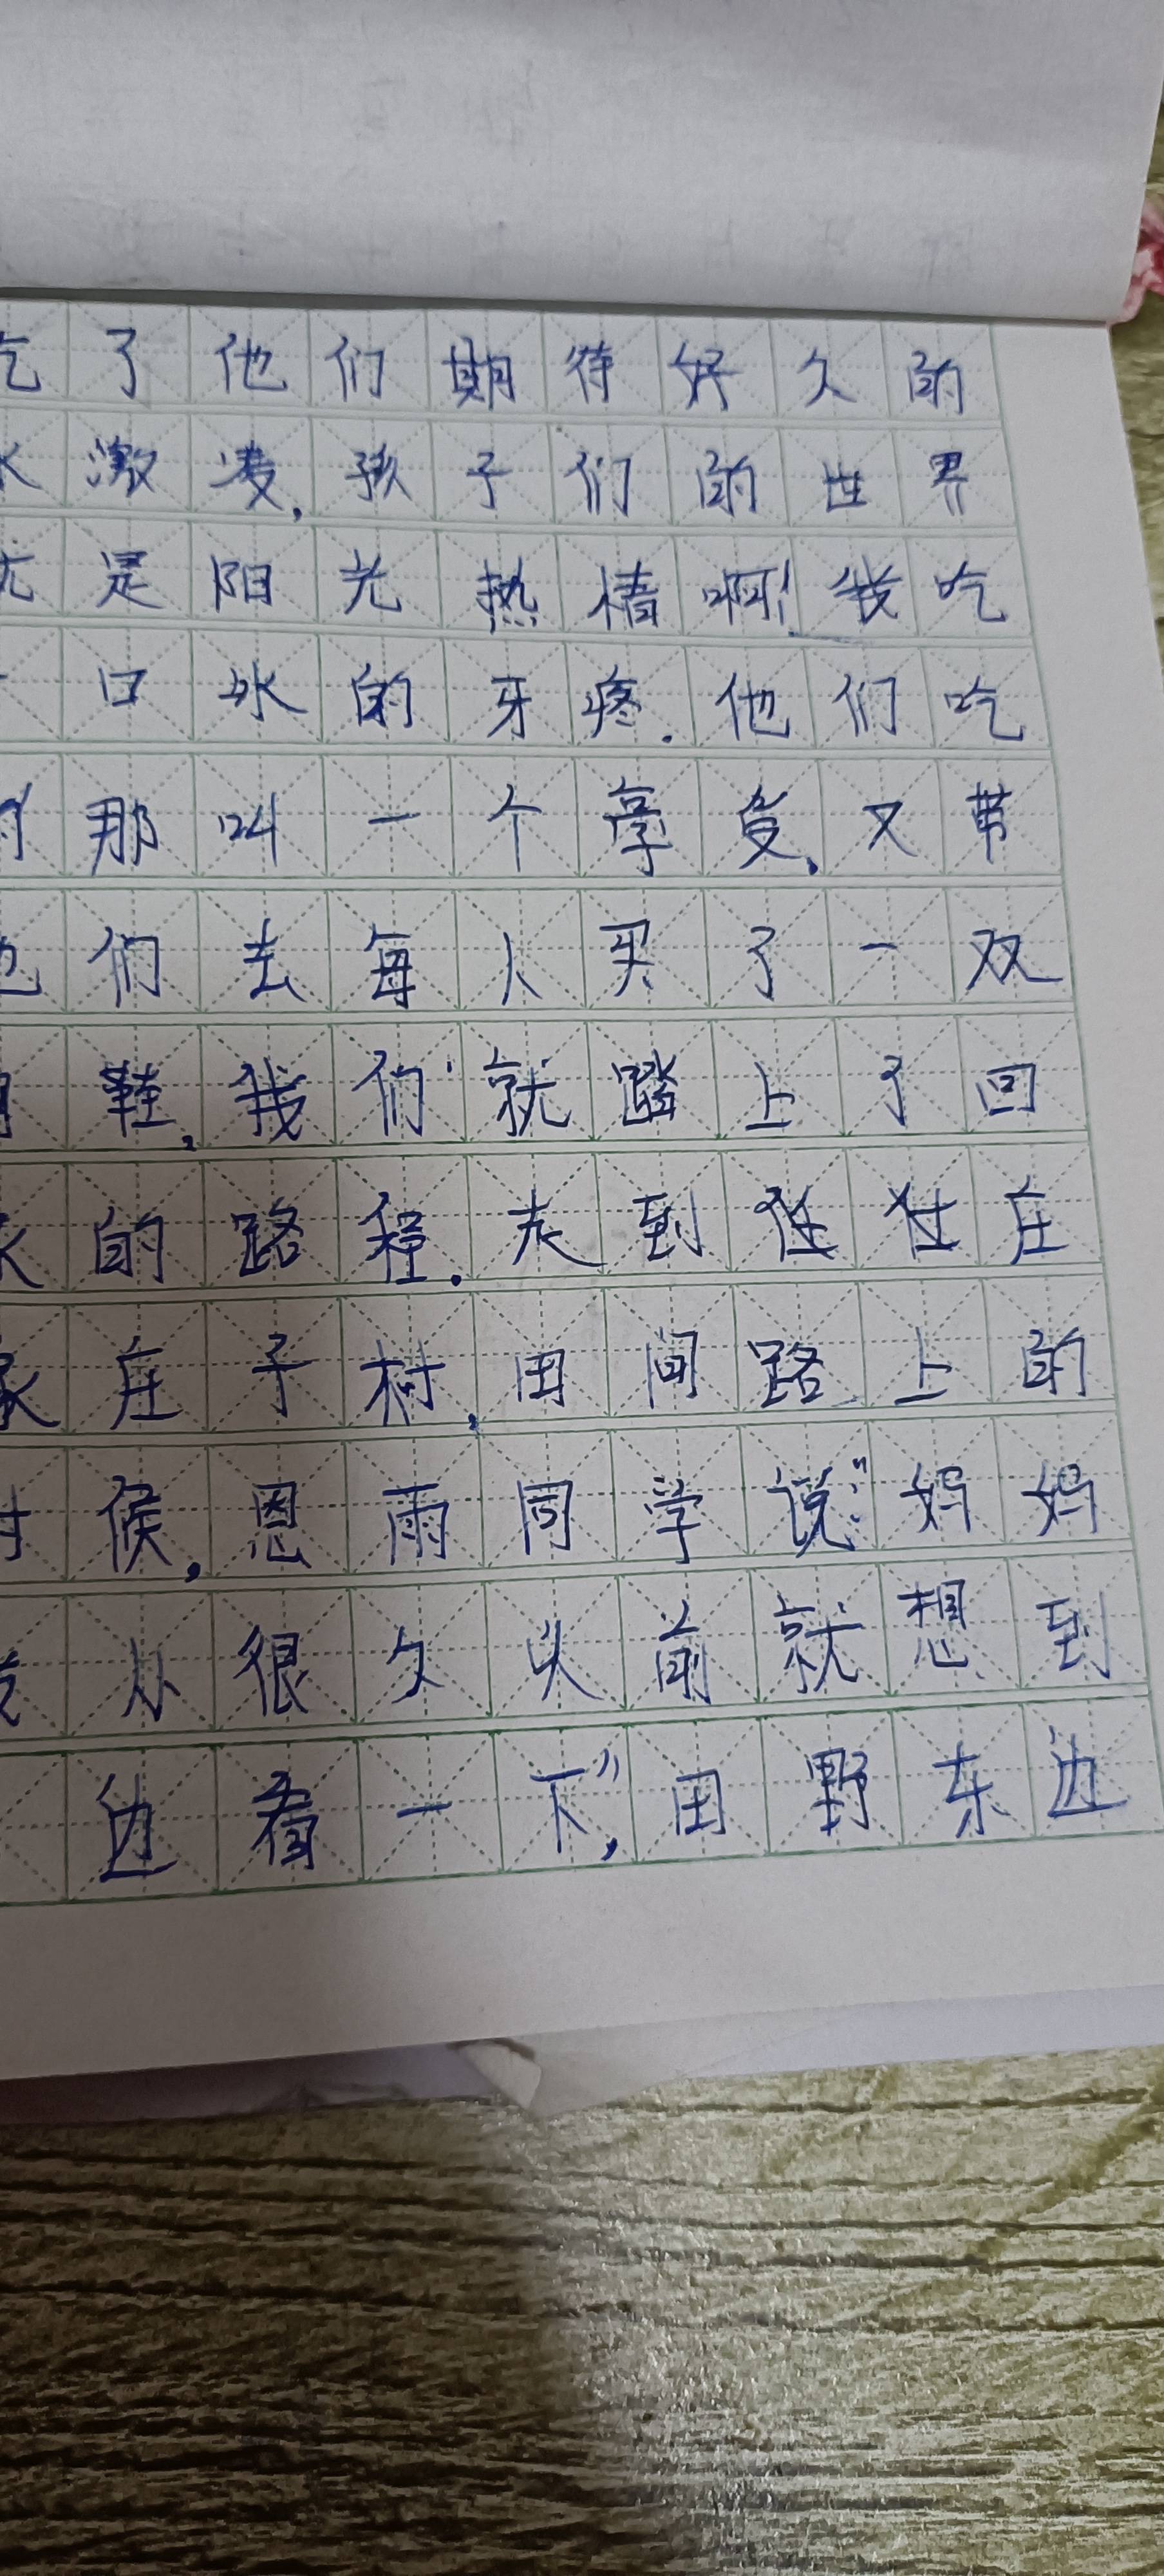 吃了他们期待好久的
冰激凌,孩子们的世界
就是阳光热情啊!我吃
口冰的牙疼.他们吃
的那叫一个享受,又带
他们去每人买了一双
鞋,我们就踏上了回
家的路程.走到庄
家庄子村,田间路上的
时候,恩雨同学说:"妈妈
我从很久以前就想到
边看一下",田野东边